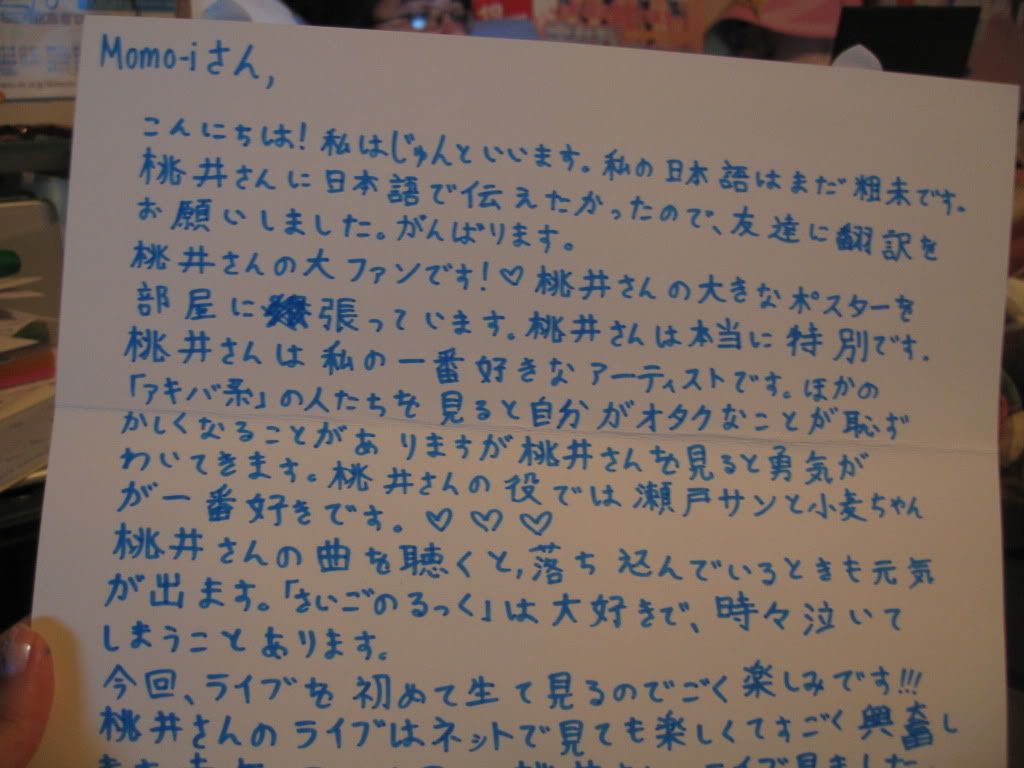 Momo-iさん,
こんにちは! 私はじゅんといいます。私の日本語はまだ粗末です。
桃井さんに日本語で伝えたかったので、友達に翻訳を
お願いしました。がんばります。
桃井さんの大ファンです!♡ 桃井さんの大きなポスターを
部屋に張っています。桃井さんは本当に特別です.
桃井さんは私の一番好きなアーティストです。ほかの
「アキバ系」の人たちを見ると自分がオタクなことが恥ず
かしくなることがありますが桃井さんを見ると勇気が
わいてきます。桃井さんの役では瀬戸サンと小麦ちゃん
が一番好きです。♡ ♡ ♡
桃井さんの曲を聴くと,落ち込んでいるときも元気
が出ます。「さいごのるっく」は大好きで、時々泣いて
しまうことあります。
今回、ライブを初めて生て見るのでごく楽しみです!!!
桃井さんのライブはネットで見ても楽しくてすごく興奮し
ライブ見ました。